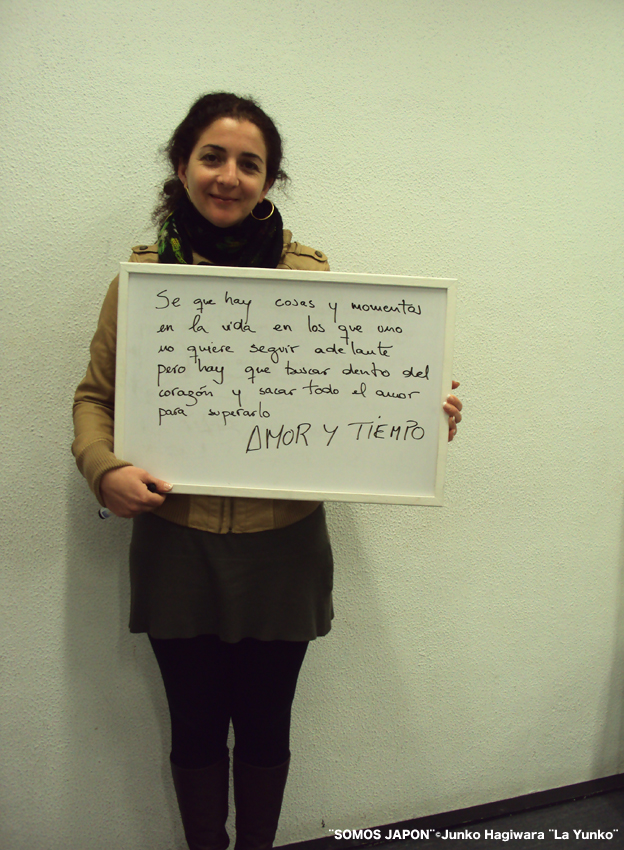 Se que hay cosas y momentos
en la vida en los que uno
no quiere seguir adelante
pero hay que buscar dentro del
corazón y sacar todo el amor
para superarlo
AMOR Y TIEMPO
¨SOMOS JAPON¨©Junko Hagiwara ¨La Yunko¨